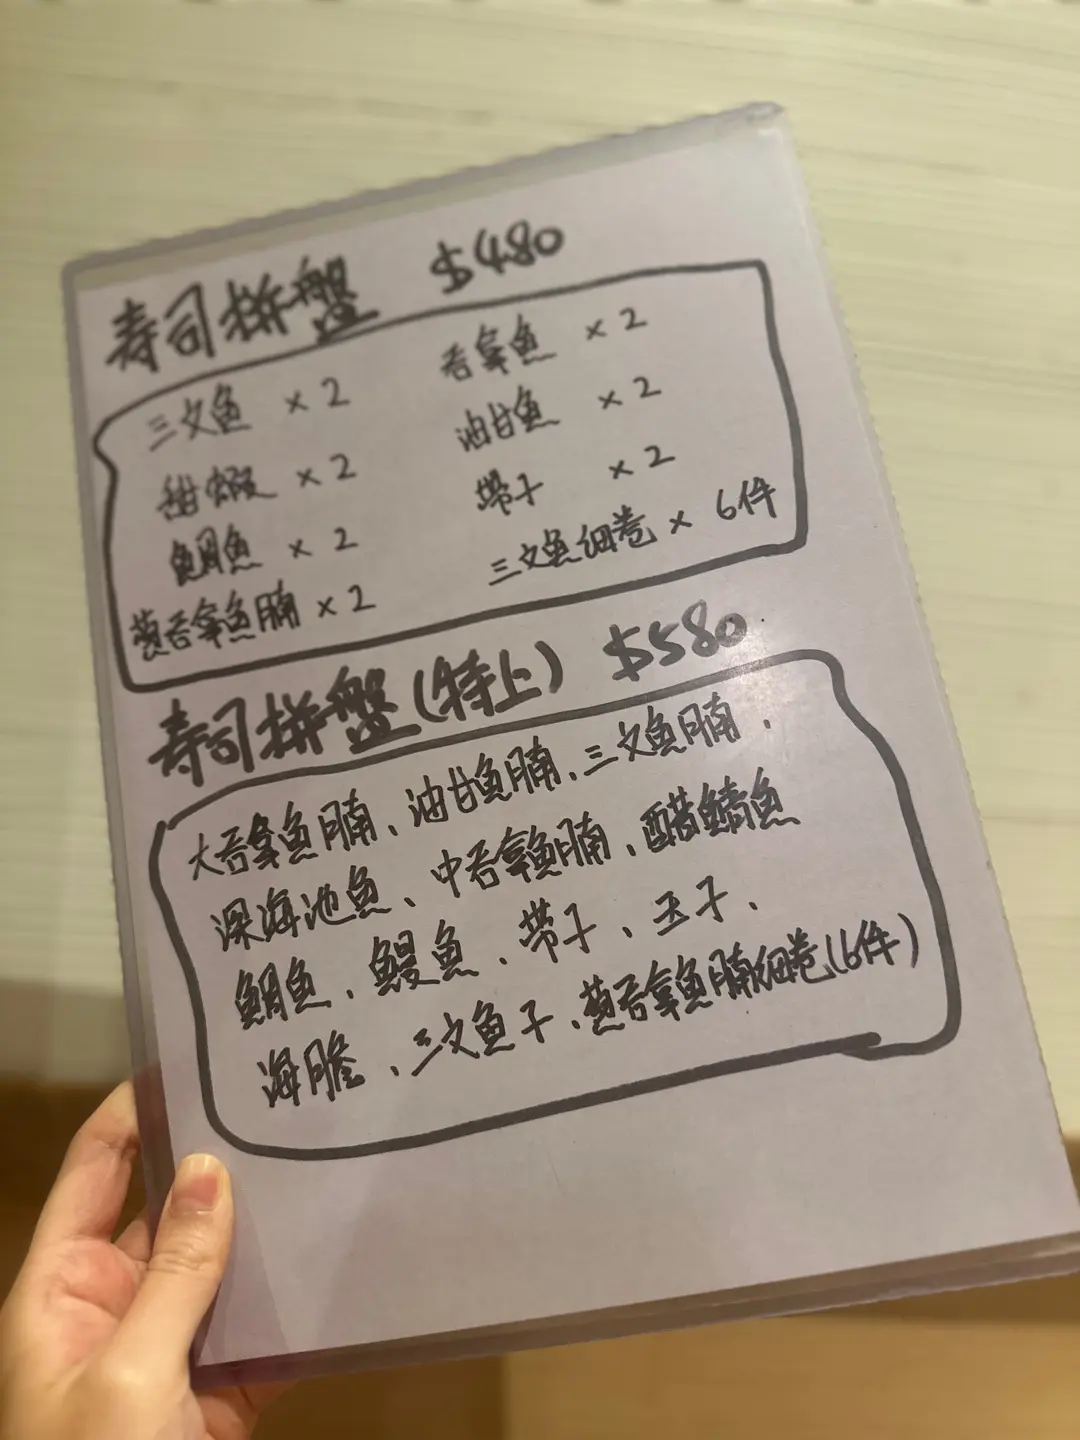 寿司拼盤 $480
三文魚 x 2 吞拿魚 x 2
甜蝦 x 2 油甘魚 x 2
鯛魚 x 2 帶子 x 2
葱吞拿魚腩 x 2 三文魚细卷 x 6件
寿司拼盤(特上) $580
大吞拿魚腩、油甘魚腩、三文魚腩、
深海池魚、中吞拿魚腩、醋鯖魚
鯛魚、鰻魚、帶子、玉子、
海膽、三文魚子、葱吞拿魚腩细卷(6件)